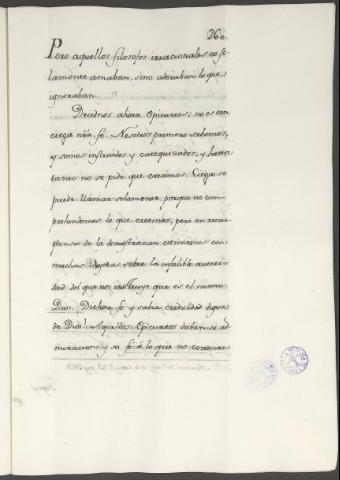 260
Pero aquellos filosofos irracionales no so-
lamente amaban, sino adoraban lo que
ignoraban.
Decidnos ahora Epicureos: no es tan
ciega nra fe. Nosotros primero sabemos,
y somos instruidos y catequizados, y hasta
tanto no se pide que creamos. Ciega se
puede llamar solamente porque no com-
prehendemos lo que creemos, pero en recom-
pensa de la demostracion estrivamos con
muchas sobre la infalible autori-
dad del que nos instruye que es el mismo
Dios. Dichosa fe y sabia credulidad digna
de Dios! Aquellos Epicureos daban su ad-
miracion y su fe á lo que no conocian